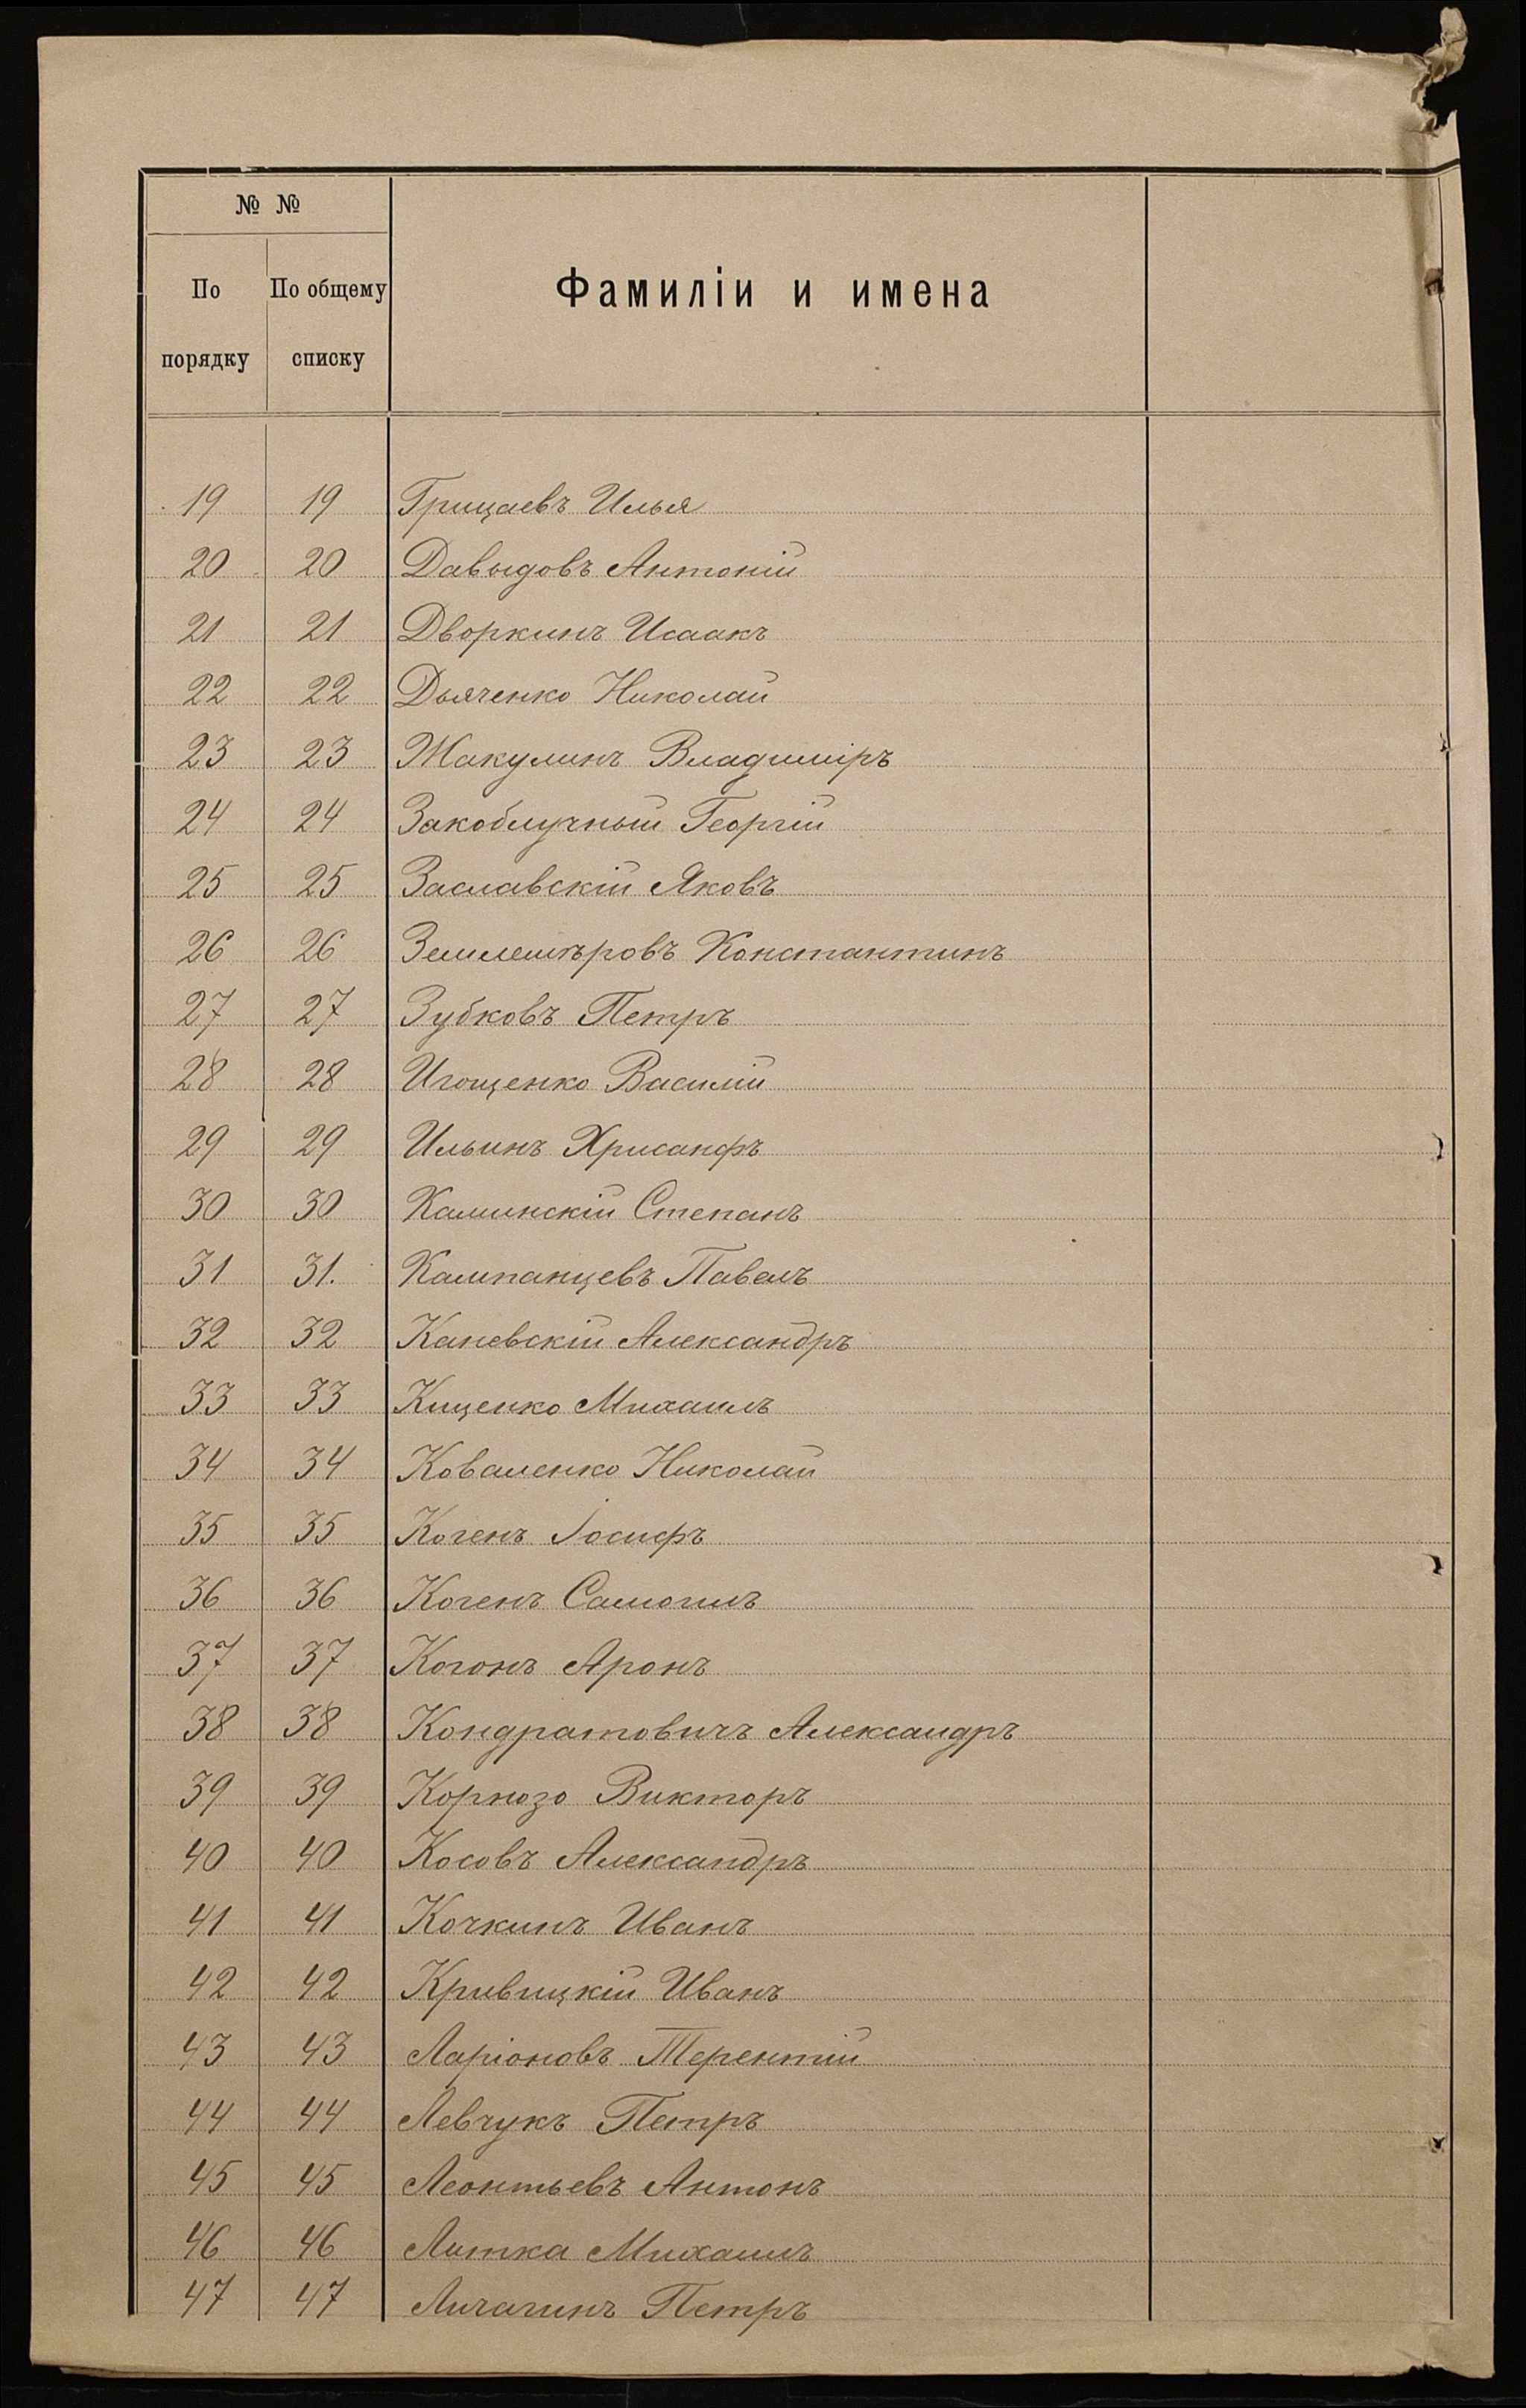 № №
По порядку
По общему списку
Фамиліи и имена
19 19 Грицаевъ Илья
20 20 Давыдовъ Антоній
21 21 Дворкинъ Исаакъ
22 22 Дьяченко Николай
23 23 Жакулинъ Владиміръ
24 24 Закоблучный Георгій
25 25 Заславскій Яковъ
26 26 Землемѣровъ Константинъ
27 27 Зубковъ Петръ
28 28 Игощенко Василій
29 29 Ильинъ Хрисанфъ
30 30 Каминскій Степанъ
31 31. Кампанцевъ Павелъ
32 32 Каневскій Александръ
33 33 Кищенко Михаилъ
34 34 Коваленко Николай
35 35 Когенъ Іосифъ
36 36 Когенъ Самоилъ
37 37 Когонъ Аронъ
38 38 Кондратовичъ Александръ
39 39 Корнозо Викторъ
40 40 Косовъ Александръ
41 41 Кочкинъ Иванъ
42 42 Кривицкій Иванъ
43 43 Ларіоновъ Терентій
44 44 Левчукъ Петръ
45 45 Леонтьевъ Антонъ
46 46 Литка Михаилъ
47 47 Личагинъ Петръ